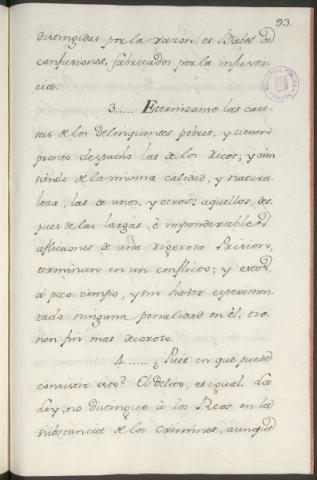 93.
distinguidas por la razon, es Babel de
confusiones, fabricados por la injusti-
cia.
3..... Eternizanse las cau-
sas de los delinquentes pobres, y tienen
pronto despacho las de los ricos; y aun
siendo de la misma calidad, y natura-
leza, las de unos, y otros; aquellos, des-
pues de las largas, è imponderables
afliciones de una rigorosa Prision,
terminan en un conflicto; y estos,
à poco tiempo, y sin haver esperimen-
tado ninguna penalidad en èl, tie-
nen fin mas decoroso.
4...... ¿Pues en que puede
consistir esto? El delito, es igual. La
Ley, no distingue à los Reos en la
substancia de los crimines, aunque